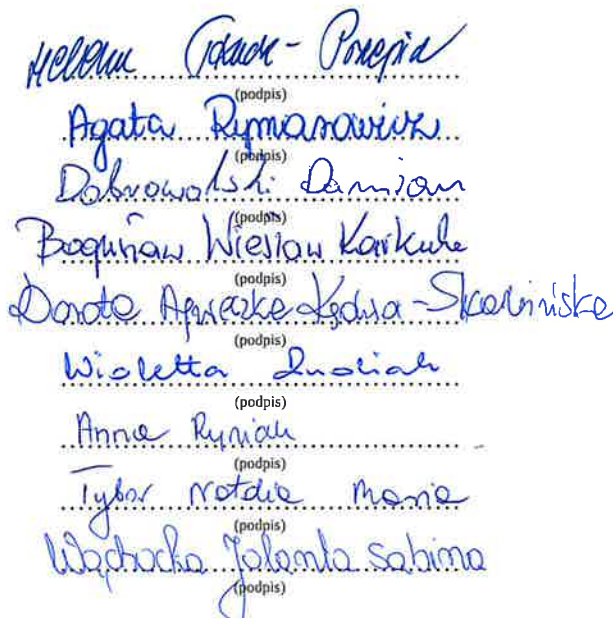 Helena
(podpis)
Agata Rymarowicz
(podpis)
Dobrowolski Damian
(podpis)
Bogusław Wiesław Karkula
(podpis)
Dorota Agnieszka Kędra-Skarbińska
(podpis)
Wioletta
(podpis)
Anna Ryniak
(podpis)
Tybor Natalia Maria
(podpis)
Wąchocka Jolanta Sabina
(podpis)